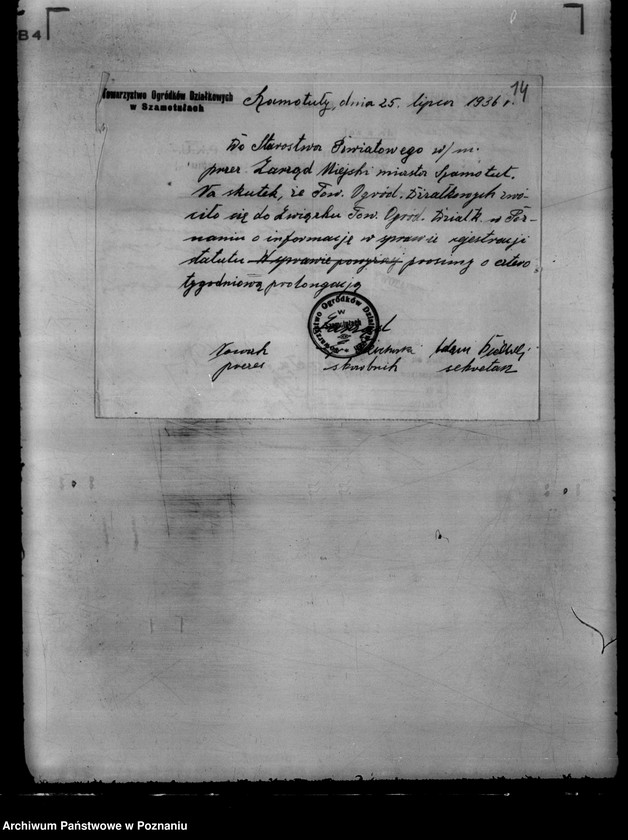 B4
14
Towarzystwo Ogródków Działkowych
w Szamotułach
Szamotuły, dnia 25. lipca 1936 r.
Do Starostwa Powiatowego w/m.
przez Zarząd Miejski miasta Szamotuł.
Na skutek, że Tow. Ogród. Działkowych zwró-
ciło się do Związku Tow. Ogród. Działk. w Poz-
naniu o informację w sprawie rejestracji
statutu W sprawie powyższej prosimy o cztero
tygodniową prolongację
Zarząd
Towarzystwo Ogródków Działkowych
w
Szamotułach
Nowak
Adam
prezes
skarbnik
sekretarz
Archiwum Państwowe w Poznaniu